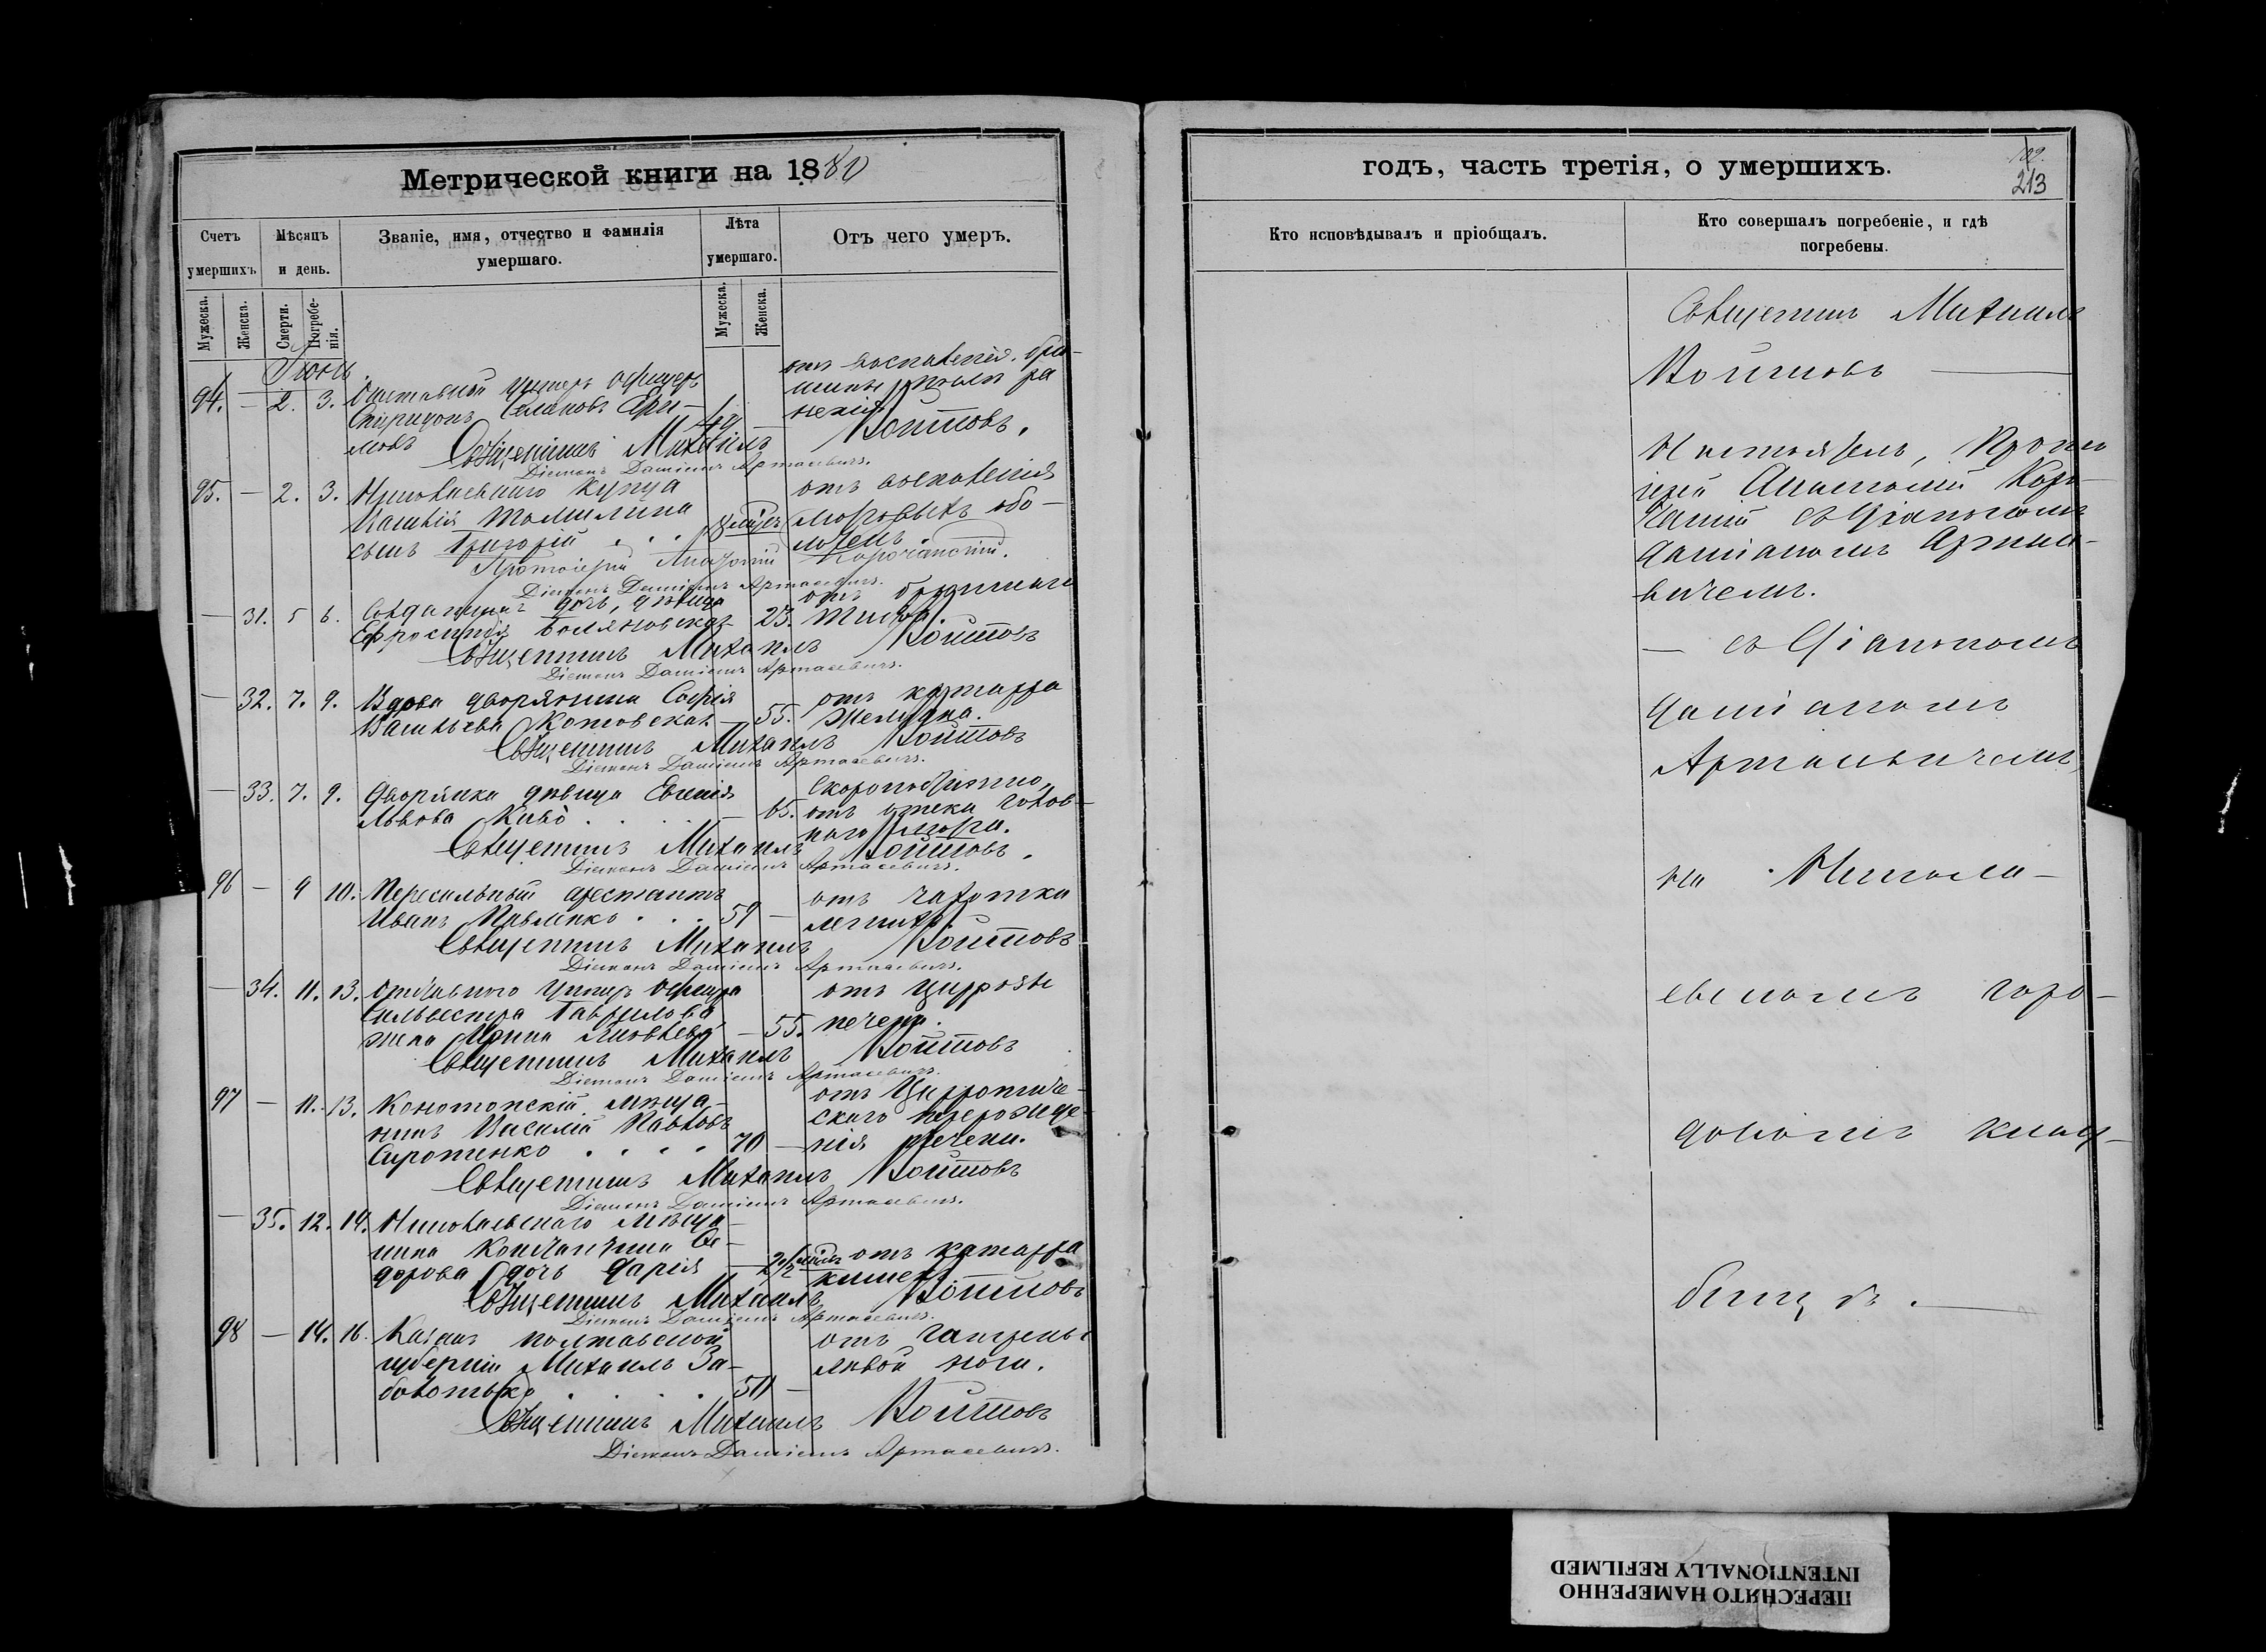 Метрической книги на 1880
Счетъ умершихъ
Мѣсяцъ и день.
Званіе, имя, отчество и фамилія умершаго.
Лѣта умершаго.
Отъ чего умеръ.
Мужеска.
Женска.
Смерти.
Погребенія.
Мужеска.
Женска.
Іюнь.
94. — 2. 3. Отставной унтеръ офицеръ
Спиридонъ
49 —
Священникъ Михаилъ Войтовъ.
Діаконъ Даміанъ Артасевичъ.
95. — 2. 3. Николаевскаго купца отъ воспаленія
Томилина
сынъ Григорій мозговыхъ обо-
лочекъ.
Протоіерей Анатолій Корочанскій.
Діаконъ Даміанъ Артасевичъ.
— 31. 5 6. Солдатская дочь, дѣвица отъ брюшнаго
Ефросинія 23. тифа.
Священникъ Михаилъ Войтовъ
Діаконъ Даміанъ Артасевичъ.
— 32. 7. 9. Вдова дворянина Софія отъ катарра
Васильева Котовская — 55. желудка.
Священникъ Михаилъ Войтовъ
Діаконъ Даміанъ Артасевичъ.
— 33. 7. 9. Дворянка дѣвица Евгенія Скоропостижно,
Львова — 65. отъ отека голов-
наго мозга.
Священникъ Михаилъ Войтовъ.
Діаконъ Даміанъ Артасевичъ.
96 — 9 10. Пересыльный арестантъ отъ чахотки
Иванъ 59 — легкихъ.
Священникъ Михаилъ Войтовъ
Діаконъ Даміанъ Артасевичъ.
— 34. 11. 13. Отставного унтеръ офицера отъ циррозы
Сильвестра Гаврилова
жена Ирина Яковлева — 55. печени.
Священникъ Михаилъ Войтовъ
Діаконъ Даміанъ Артасевичъ.
97 — 11. 13. Конотопскій мѣща- отъ цирротиче-
нинъ Василій Павловъ скаго перерожде-
Сиротенко 70 — нія печени.
Священникъ Михаилъ Войтовъ
Діаконъ Даміанъ Артасевичъ.
— 35. 12. 14. Николаевскаго мѣща-
нина Константина Ѳе-
дорова дочь Дарія — 2½ отъ катарра
кишекъ
Священникъ Михаилъ Войтовъ
Діаконъ Даміанъ Артасевичъ.
98 — 14. 16. Казакъ Полтавской отъ гангрены
губерніи Михаилъ За- лѣвой ноги.
50 —
Священникъ Михаилъ Войтовъ
Діаконъ Даміанъ Артасевичъ.
годъ, часть третія, о умершихъ.
213
Кто исповѣдывалъ и пріобщалъ.
Кто совершалъ погребеніе, и гдѣ
погребены.
Священникъ Михаилъ
Войтовъ —
Настоятель, Прото
іерей Анатолій Коро-
чанскій съ Діакономъ
Даміаномъ Артасе-
вичемъ.
— съ Діакономъ
Даміаномъ
Артасевичемъ,
на Никола-
евскомъ горо-
дскомъ клад-
бищѣ. —
ПЕРЕСНЯТО НАМЕРЕННО
INTENTIONALLY REFILMED